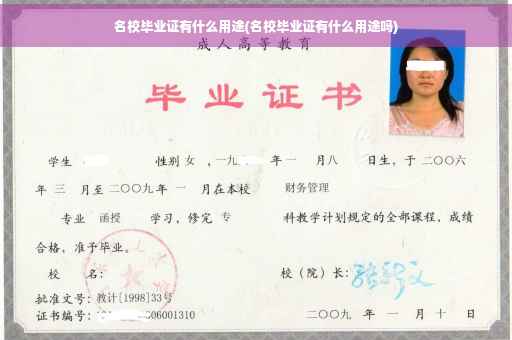 名校毕业证有什么用途(名校毕业证有什么用途吗)
成人高等教育
毕业证书
学生 性别 女 ,一九 年一 月八 日生,于二〇〇六
年 三 月至二〇〇九年 一 月在本校 财务管理
专业 函授 学习,修完 专 科教学计划规定的全部课程,成绩
合格,准予毕业。
校 名: 校(院)长:
批准文号:教计[1998]33号
证书编号: 06001310 二〇〇九 年 一 月 十 日